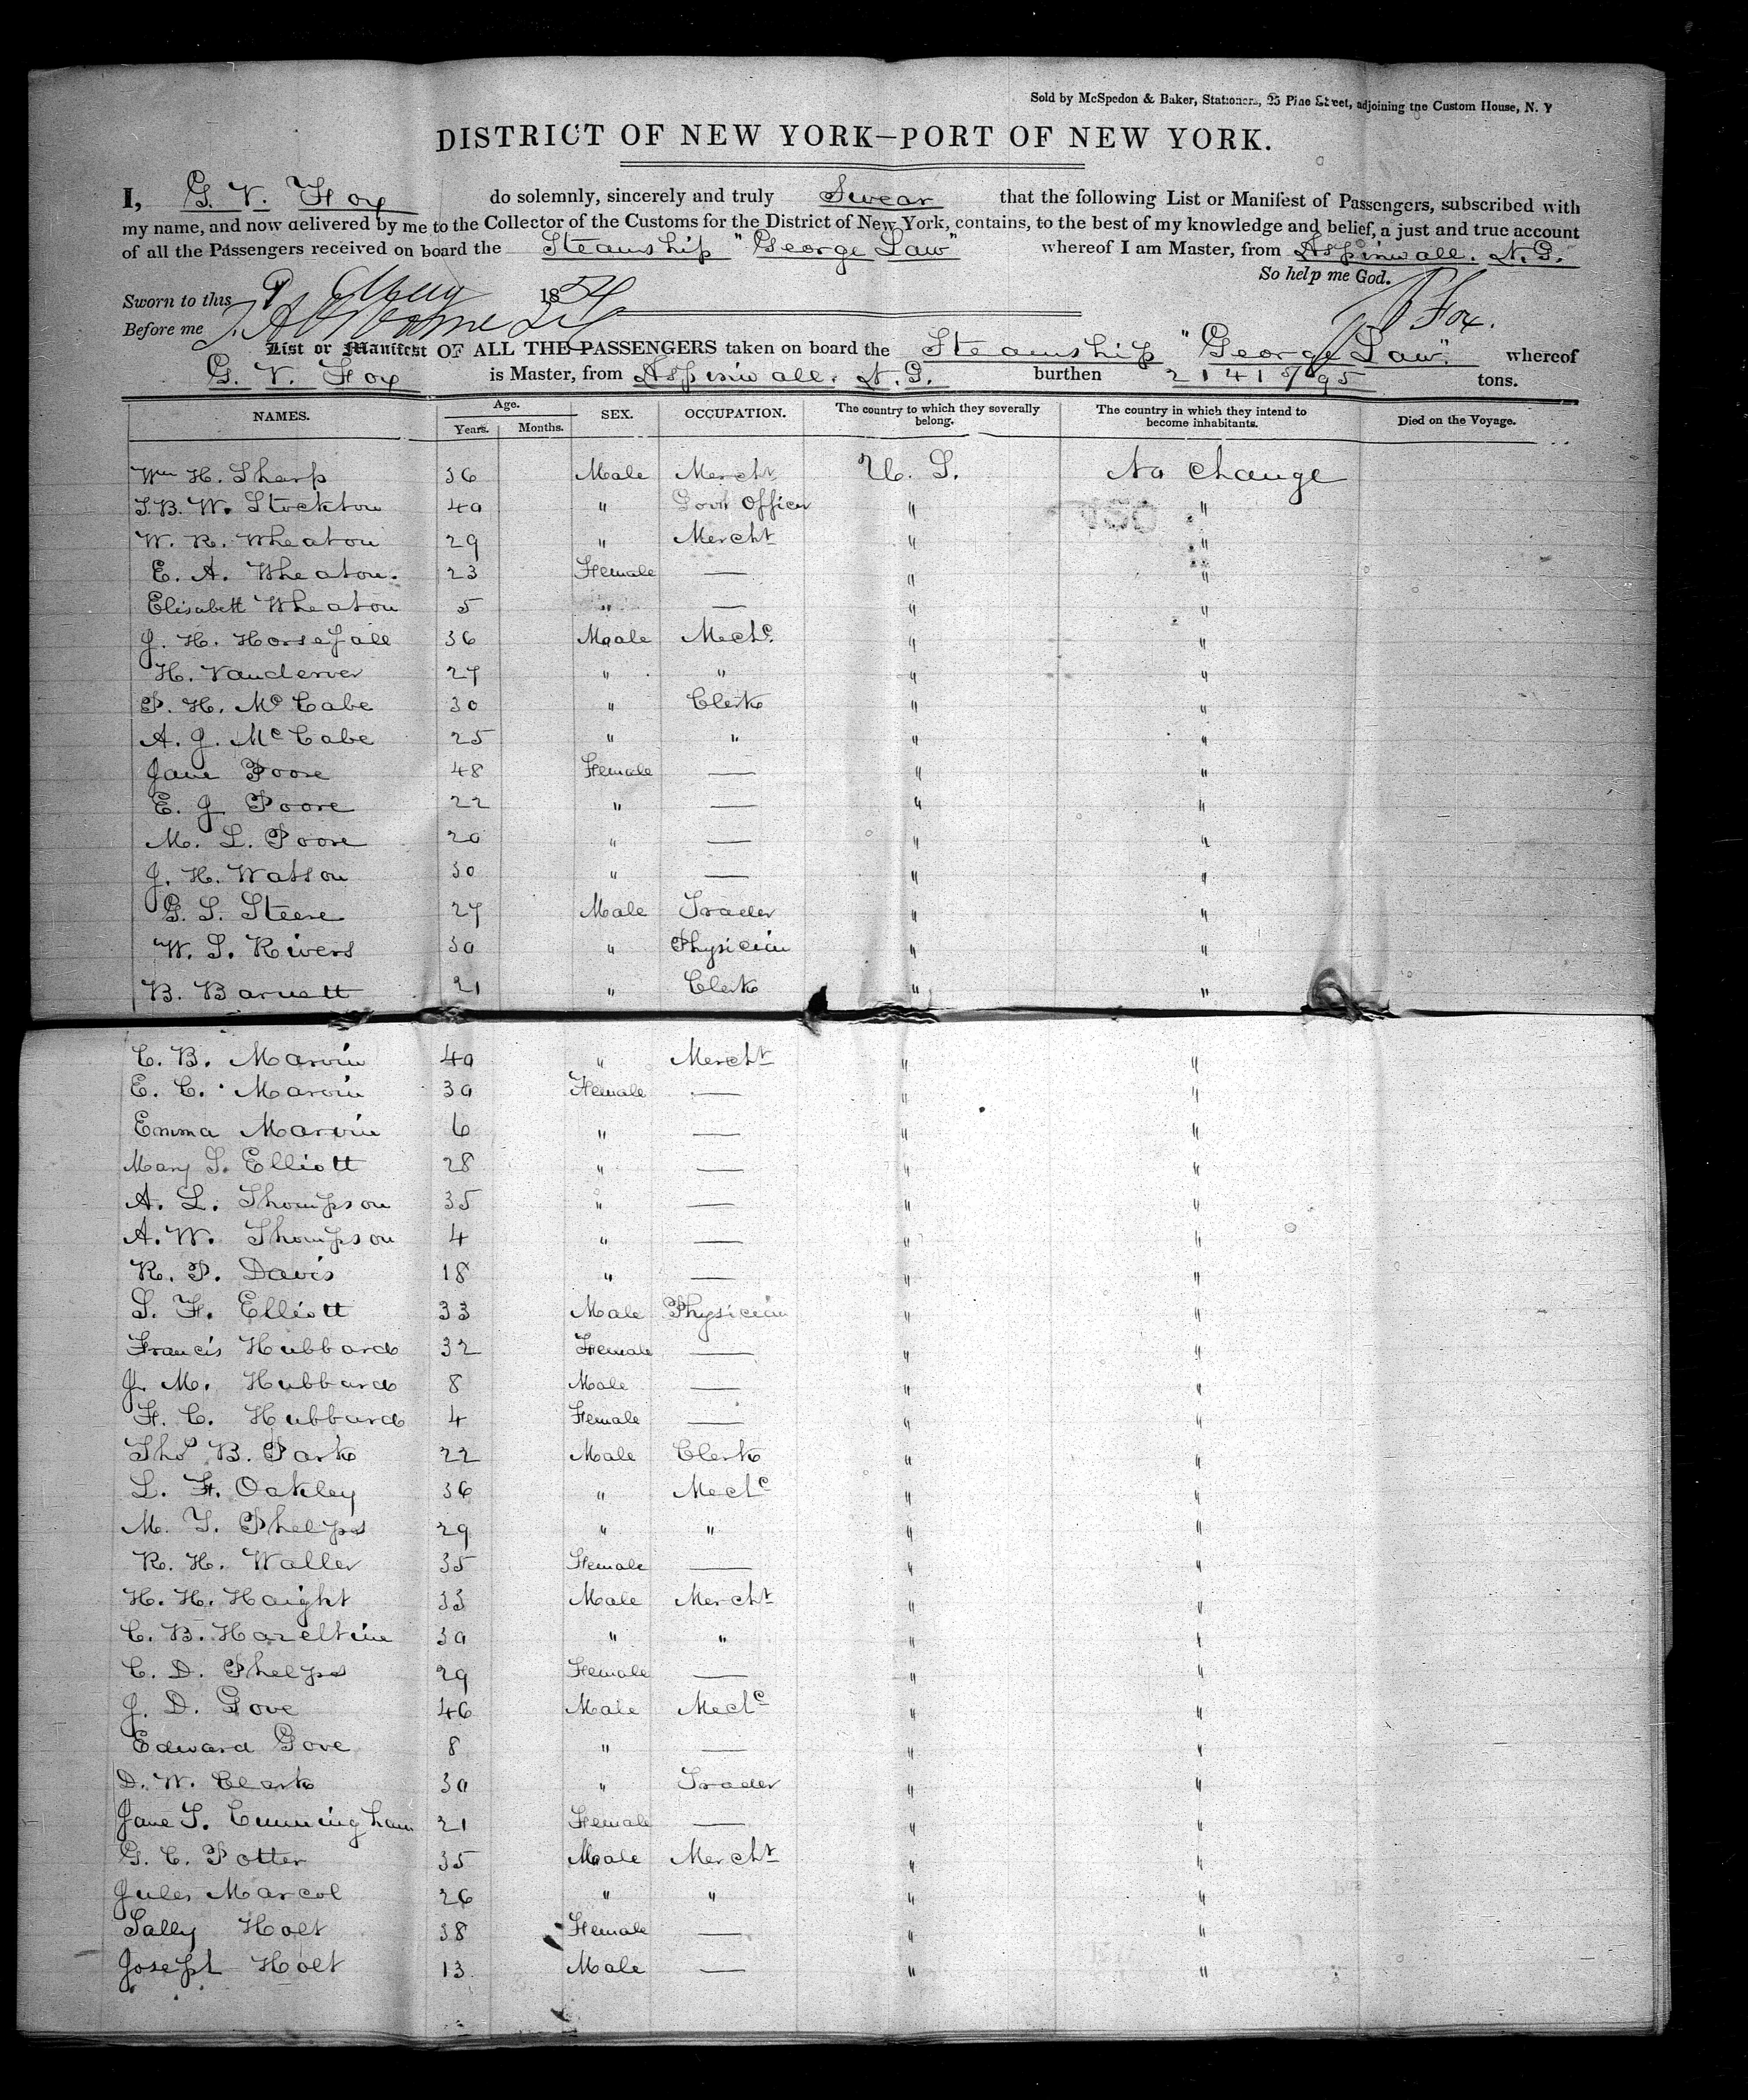 Sold by McSpedon & Baker, Stationers, 25 Pine Street, adjoining the Custom House, N. Y
DISTRICT OF NEW YORK—PORT OF NEW YORK.
I, G. V. Fox do solemnly, sincerely and truly Swear that the following List or Manifest of Passengers, subscribed with
my name, and now delivered by me to the Collector of the Customs for the District of New York, contains, to the best of my knowledge and belief, a just and true account
of all the Passengers received on board the Steamship "George Law" whereof I am Master, from Aspinwall. N. G.
So help me God.
Sworn to this 9 May 1854
Fox.
Before me
List or Manifest OF ALL THE PASSENGERS taken on board the Steamship "George Law". whereof
G. V. Fox is Master, from Aspinwall. N. G. burthen 2141 5/95 tons.
NAMES. Age. Years. Months. SEX. OCCUPATION. The country to which they severally belong. The country in which they intend to become inhabitants. Died on the Voyage.
Wm H. Sharp 36 Male Mercht U. S. No change
S. B. W. Stockton 40 " Govt Officer " "
W. R. Wheaton 29 " Mercht " "
E. A. Wheaton. 23 Female — " "
Elisabett Wheaton 5 " — " "
J. H. Horsefall 36 Male Mechc. " "
H. Vanderver 27 " " " "
P. H. McCabe 30 " Clerk " "
A. J. McCabe 25 " " " "
Jane Poore 48 Female — " "
E. J Poore 22 " — " "
M. L. Poore 20 " — " "
J. H. Watson 30 " — " "
G. S. Steere 27 Male Trader " "
W. S. Rivers 30 " Physician " "
B. Barnett 21 " Clerk " "
C. B. Marvin 40 " Mercht " "
E. C. Marvin 30 Female — " "
Emma Marvin 6 " — " "
Mary S. Elliott 28 " — " "
A. L. Thompson 35 " — " "
A. W. Thompson 4 " — " "
R. P. Davis 18 " — " "
S. F. Elliott 33 Male Physician " "
Francis Hubbard 32 Female — " "
J. M. Hubbard 8 Male — " "
F. C. Hubbard 4 Female — " "
Thos B. Park 22 Male Clerk " "
L. F. Oakley 36 " Mechc " "
M. T. Phelps 29 " " " "
R. H. Waller 35 Female — " "
H. H. Haight 33 Male Mercht " "
C. B. Hazeltine 30 " " " "
C. D. Phelps 29 Female — " "
J. D. Gove 46 Male Mechc " "
Edward Gove 8 " — " "
D. W. Clark 30 " Trader " "
Jane S. Cunningham 21 Female — " "
G. C. Potter 35 Male Mercht " "
Jules Marcol 26 " " " "
Sally Holt 38 Female — " "
Joseph Holt 13 Male — " "